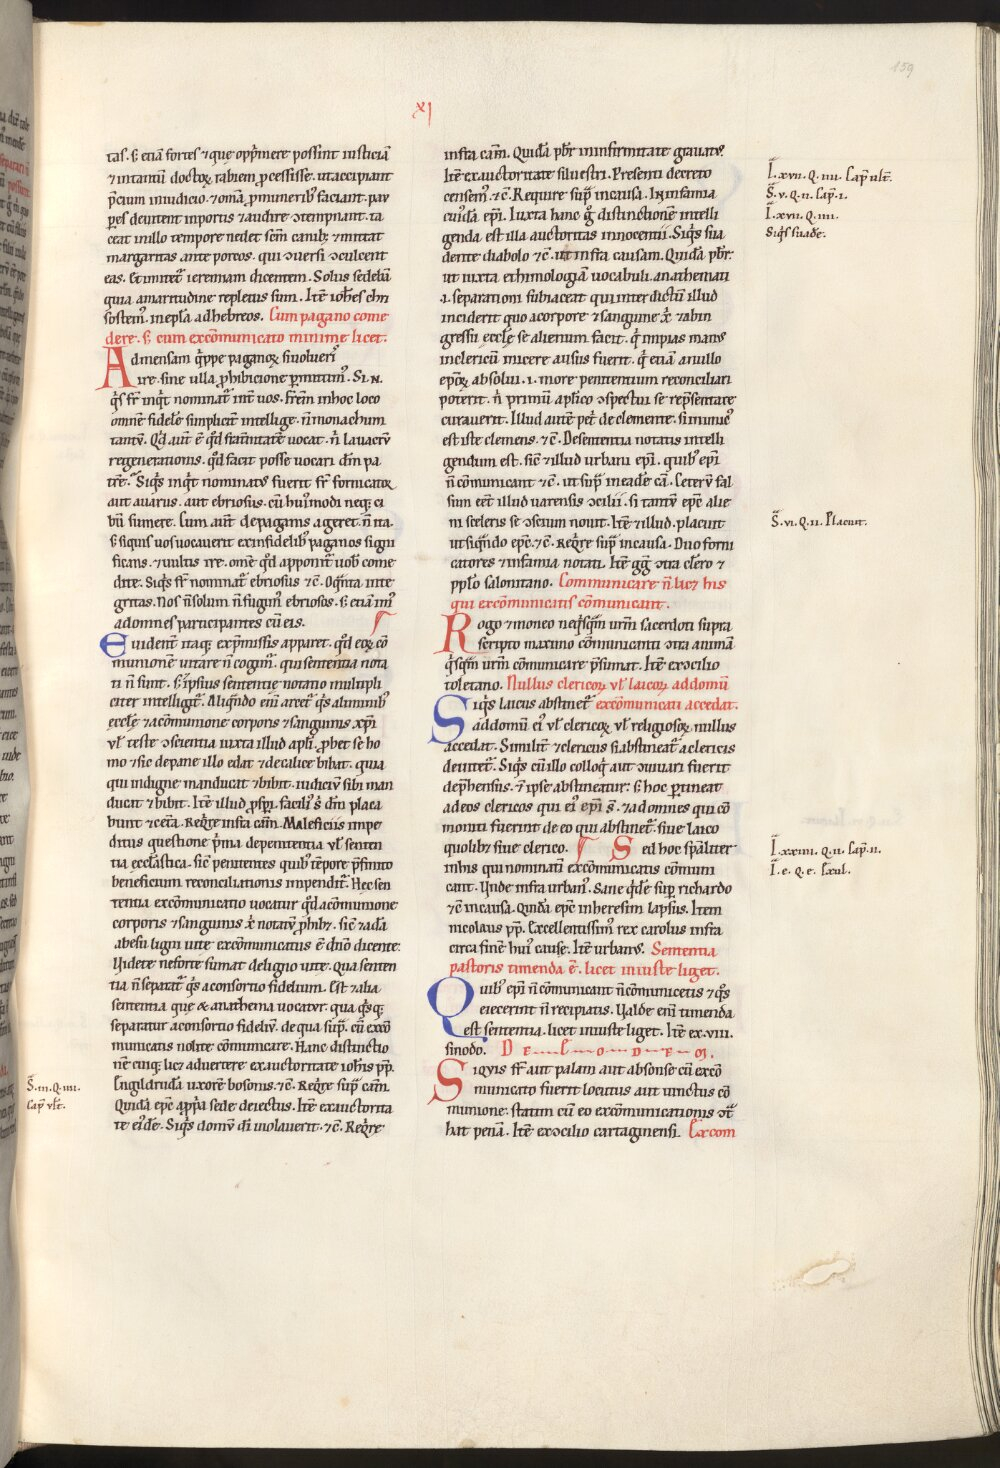 159
XI
tas. s; etiā fortes ⁊ que opp̄mere possint iusticiā
⁊ intantū doctoꝝ rabiem ꝓcessisse. ut accipiant
p̄cium iniudicio ⁊ omā ꝓ munerib; faciant. pau
ꝑes deuitent inportis ⁊ audire ɔtempnant. ta
ceat inillo tempore nedet sc̄m canib; ⁊ mittat
margaritas ante porcos. qui ɔuersi ɔculcent
eas. Et imitet̄ ieremiam dicentem. Solus sedebā
quia amaritudine repletus sum. Itē ioh̄es cri
sostem᷒. inepl̄a adhebreos. Cum pagano come
dere. s; cum excōmunicato minime licet.
Ad mensam q̄ppe paganoꝝ siuolueri
tis ire. sine ulla ꝓhibicione ꝑmittim᷒. Si
q̄s fr̄ inq̄t nominat̄ int̄ uos. Fr̄em inhoc loco
omnē fidelē simplicit̄ intellige. n̄ monachum
tantū. Qd̄ aut̄ ē qd̄ fr̄aternitatē uocat. n̄ lauacrū
regenerationis. qd̄ facit posse uocari dm̄ pa
trē. Siq̄s inq̄t nominat᷒ fuerit fr̄ fornicatoꝝ
aut auarus. aut ebriosus. cū hui᷒modi neq; ci
bū sumere. Cum aut̄ depaganis ageret. n̄ ita.
s; siquis uos uocauerit exinfidelib; paganos signi
ficans. ⁊ uultis ire. omē qd̄ apponit̄ uob̄ come
dite. Siq̄s fr̄ nominat̄ ebriosus ⁊c̄. Oq̄nta inte
gritas. Nos n̄ solum n̄ fugim᷒ ebriosos. s; etiā im᷒
adomnes participantes cū eis. ¶
Euident̄ itaq; exp̄missis apparet. qd̄ eoꝝ cō
munionē uitare n̄ cogim̄. qui sententia nota
ti n̄ sunt. s; ipsius sententie notatio multipli
citer intelligit̄. Aliq̄ndo enī arcet̄ q̄s aliminib;
eccl̄e ⁊ acōmunione corporis ⁊ sanguinis xp̄i
ul̄ teste ɔscientia iuxta illud apl̄i. ꝓbet se ho
mo ⁊ sic depane illo edat ⁊ decalice bibat. quia
qui indigne manducat ⁊ bibit. iudiciū sibi man
ducat ⁊ bibit. Itē illud ꝓsꝑi. facili᷒ s; dm̄ placa
bunt ⁊ cet̄a. Req̄re infra cām. Maleficiis impe
ditus questione p̄ma depenitentia ul̄ senten
tia eccl̄astica. sic penitentes quib; tēpore p̄finito
beneficium reconciliationis impendit̄. Hec sen
tentia excōmunicatio uocatur qd̄ acōmunione
corporis ⁊ sanguinis x̄ notatū ꝓhib;. sic ⁊ adā
abesu ligni uite excōmunicatus ē dn̄o dicente:
Uidete neforte sumat deligno uite. Qua senten
tia n̄ separat̄ q̄s aconsortio fidelium. Est ⁊ alia
sententia que & anathema uocatur. qua q̄sq;
separatur aconsortio fideliū. de qua sup̄. cū excō
municatis nolite cōmunicare. Hanc distinctio
nē cuiq; lic; aduertere exauctoritate ioh̄is pp̄.
Engildrudā uxorē bosonis. ⁊c̄. Req̄re sup̄ cām.
Quidā ep̄c app̄a sede deiectus. Itē exauctorita
te ei᷒dē. Siq̄s domū di uiolauerit. ⁊c̄. Req̄re
S. iii. Q. iiii.
Cap̄ ult̄.
infra cām. Quidā pbr̄ ininfirmitate grauat᷒.
Itē ex auctoritate siluestri. Presenti decreto
censem᷒. ⁊c̄. Require sup̄ incausa. In infamia
cui᷒dā ep̄i. Iuxta hanc ḡ distinctionē intelli
genda est illa auctoritas innocentii. Siq̄s sua
dente diabolo ⁊c̄. ut infra causam. Quidā pbr̄.
ut iuxta ethimologiā uocabuli. anathemati
.i. separationi subiaceat qui interdictū illud
inciderit quo acorpore ⁊ sanguine x̄ ⁊ abin
gressu eccl̄e se alienum facit. q̄ impias man᷒
inclericū inicere ausus fuerit. q̄ etiā anullo
ep̄oꝝ absolui. .i. more penitentium reconciliari
poterit. n̄ primū apl̄ico ɔspectui se rep̄sentare
curauerit. Illud autē pet̄ de clemente. si inimic᷒
est iste clemens. ⁊c̄. De sententia notatis intelli
gendum est. sic ⁊ illud urbani ep̄i. quib; ep̄i
n̄ cōmunicant ⁊c̄. ut sup̄ ineadē cā. Ceterū fal
sum eet̄ illud uarensis ɔcilii. si tantū ep̄c alie
ni sceleris se ɔscium nouit. Itē ⁊ illud. placuit
ut siq̄ndo ep̄c. ⁊c̄. Req̄re sup̄ incausa. Duo forni
catores ⁊ infamia notati. Itē ḡḡ ɔtra clero ⁊
ppl̄o salonitano. Communicare n̄ lic; his
qui excōmunicatis cōmunicant.
Rogo ⁊ moneo neq̄sq̄m ur̄m sacerdoti supra
scripto maximo cōmunicanti ɔtra animā
q̄sq̄m ur̄m cōmunicare p̄sumat. Itē exɔcilio
toletano. Nullus clericoꝝ ul̄ laicoꝝ addomū
excōmunicati accedat.
Siq̄s laicus abstinet̄
addomū ei᷒ ul̄ clericoꝝ ul̄ religiosoꝝ nullus
accedat. Similit̄ ⁊ clericus si abstineat̄ a clericis
deuitet̄. Siq̄s cū illo colloq̄ aut ɔuiuari fuerit
dep̄hensus. ⁊ ipse abstineatur. s; hoc ꝑtineat
adeos clericos qui ei᷒ ep̄i s̄. ⁊ adomnes qui cō
moniti fuerint de eo qui abstinet̄. siue laico
quolib; siue clerico. ¶ Sed hoc sp̄aliter
inhis qui nominati excōmunicatis cōmuni
cant. Unde infra urban᷒. Sane q̄dē sup̄ richardo
⁊c̄ incausa. Quidā ep̄c inheresim lapsus. Item
nicolaus pp̄. Excellentissim᷒ rex carolus infra
circa finē hui᷒ cause. Itē urban᷒. Sententia
pastoris timenda ē. licet iniuste liget.
Quib; ep̄i n̄ cōmunicant n̄ cōmunicetis ⁊ q̄s
eiecerint n̄ recipiatis. Ualde enī timenda
est sententia. licet iniuste liget. Itē ex .viii.
sinodo. D e eodem.
Siquis fr̄ aut palam aut absonse cū excō
municato fuerit locutus aut uinctus cō
munione. statim cū eo excōmunicationis ɔt̄
hat penā. Itē exɔcilio cartaginensi. Excom
I. xvii. Q. iiii. Cap̄ ult̄.
S. v. Q. ii. Cap̄. i.
I. xvii. Q. iiii.
Siq̄s suade.
S. vi. Q. ii. Placuit.
I. xxiiii. Q. ii. Cap̄. ii.
I. e. Q. e. Exul.